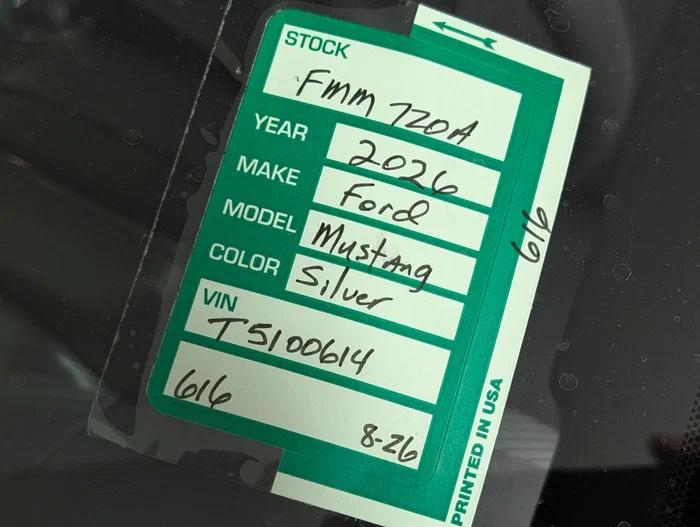 STOCK
FMM 720A
YEAR 2026
MAKE Ford
MODEL Mustang
COLOR Silver
VIN
T5100614
616 8-26
616
PRINTED IN USA